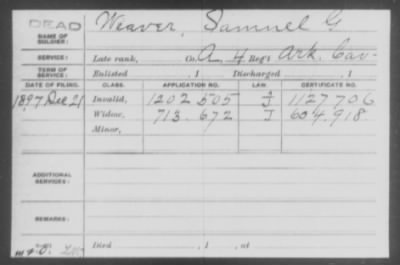 DEAD
NAME OF SOLDIER: Weaver, Samuel G
SERVICE: Late rank, Co. A, 4 Reg't Ark. Cav.
TERM OF SERVICE: Enlisted , 1 Discharged , 1
DATE OF FILING. CLASS. APPLICATION NO. LAW. CERTIFICATE NO.
1897 Dec 21 Invalid, 1202 505 J 1127 706
Widow, 713.672 J 604.918
Minor,
ADDITIONAL SERVICES:
REMARKS:
Died , 1 , at